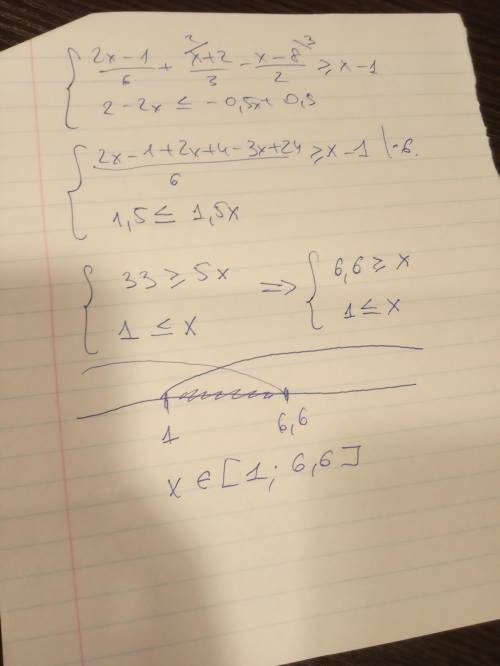 { (2x-1)/6 + (x+2)/3 ^2 - (x-8)/2 ^3 ≥ x-1
2-2x ≤ -0,5x+ 0,5
{ (2x-1+2x+4-3x+24)/6 ≥ x-1 |·6.
1,5 ≤ 1,5x
{ 33 ≥ 5x => { 6,6 ≥ x
1 ≤ x 1 ≤ x
1 6,6
x ∈ [1; 6,6]